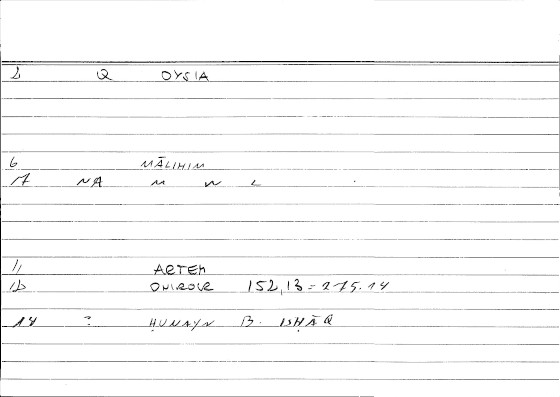 2 Q OYSIA
6 MĀLIHIM
17 NA M W L .
11 ARTEM
1b ONIROCR 152,13 = 275.14
14 ? ḤUNAYN B. ISḤĀQ